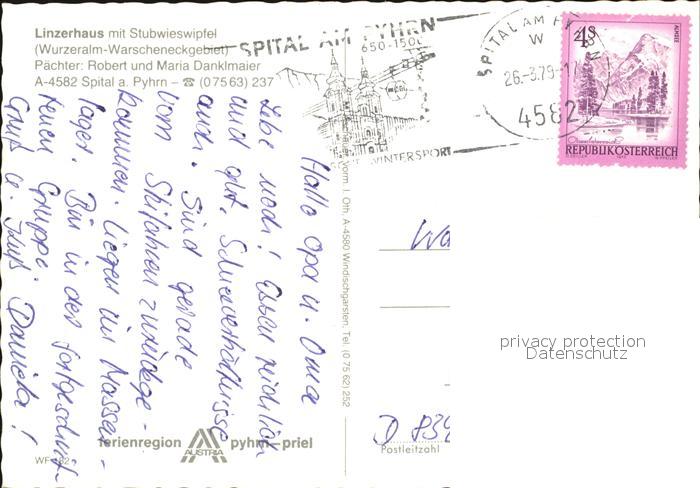 Linzerhaus mit Stubwieswipfel
(Wurzeralm-Warscheneckgebiet)
Pächter: Robert und Maria Danklmaier
A-4582 Spital a. Pyhrn – ☎ (07563) 237
SPITAL AM PYHRN
650-150
WINTERSPORT
SPITAL AM P
26.-3.79-1
4582
4S
ALMSEE
REPUBLIK ÖSTERREICH
Hallo Opa u. Oma
Lebe noch! Essen reichlich
und gut. Schneeverhältnisse
auch. Sind gerade
vom Skifahren zurückge-
kommen. Liegen im Massen-
lager. Bin in der fortgeschritt
tenen Gruppe.
Gruß u. Kuß Daniela!
Vorm. I. Oth, A-4580 Windischgarsten, Tel. (0 75 62) 252
Wa
D 839
Postleitzahl
privacy protection
Datenschutz
ferienregion pyhrn-priel
AUSTRIA
WF 182